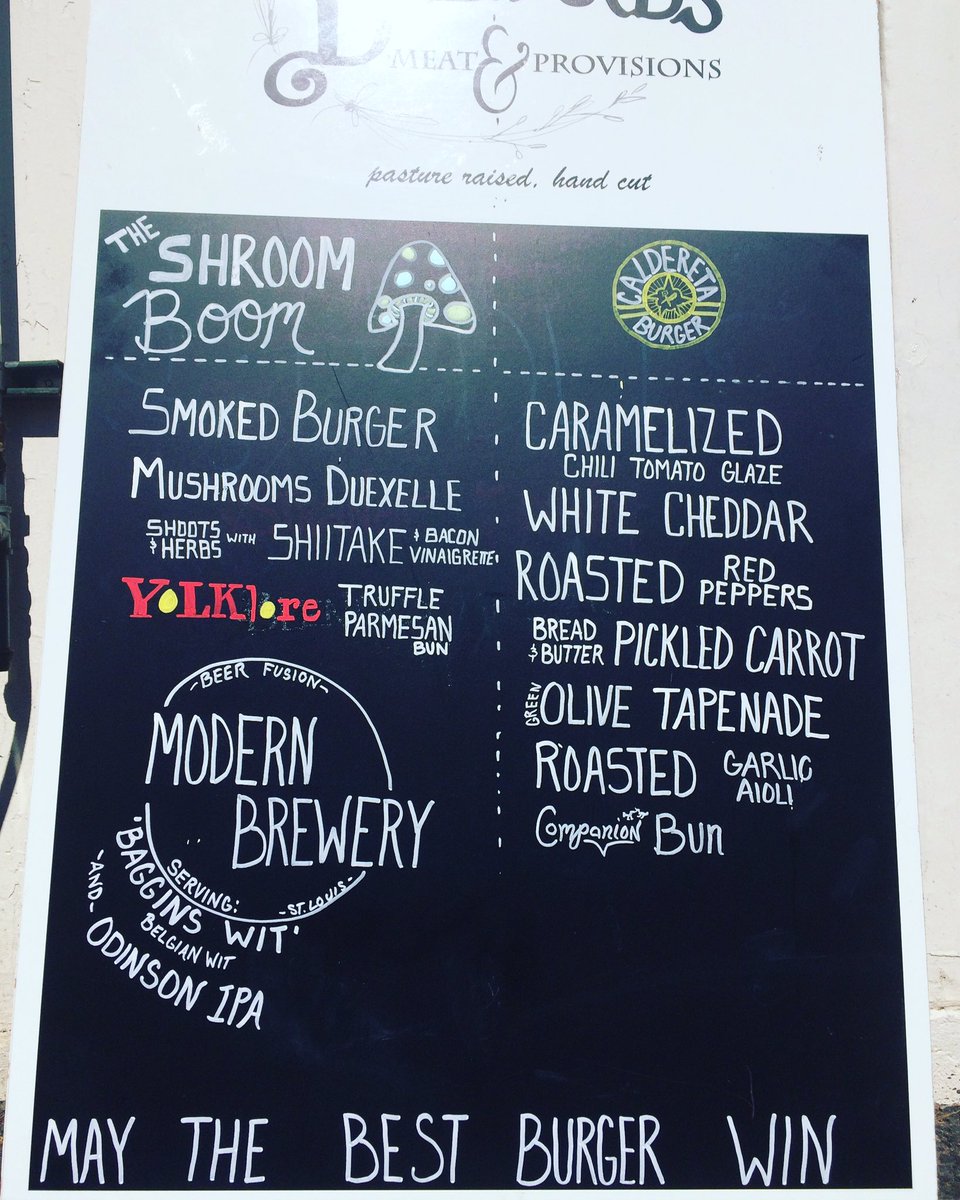 MEAT & PROVISIONS
pasture raised, hand cut
THE
SHROOM
BOOM
SMOKED BURGER
MUSHROOMS DUEXELLE
SHOOTS & HERBS WITH SHIITAKE & BACON VINAIGRETTE
YOLKlore TRUFFLE PARMESAN BUN
-BEER FUSION-
MODERN
BREWERY
SERVING: -ST. LOUIS-
'BAGGINS WIT'
BELGIAN WIT
-AND-
ODINSON IPA
CALDERETA
BURGER
CARAMELIZED
CHILI TOMATO GLAZE
WHITE CHEDDAR
ROASTED RED PEPPERS
BREAD & BUTTER PICKLED CARROT
GREEN OLIVE TAPENADE
ROASTED GARLIC AIOLI
Companion Bun
MAY THE BEST BURGER WIN